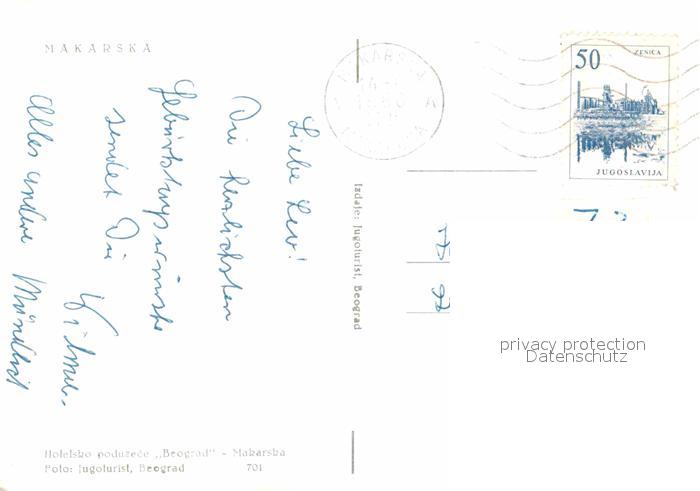 MAKARSKA
Liebe Lev!
Die herzlichsten
Geburtstagswünsche
sendet Dir
Alles andere Mündlich
Izdaje: Jugoturist, Beograd
50
ZENICA
JUGOSLAVIJA
MAKARSKA
privacy protection
Datenschutz
Hotelsko poduzeće „Beograd" - Makarska
Foto: Jugoturist, Beograd 701